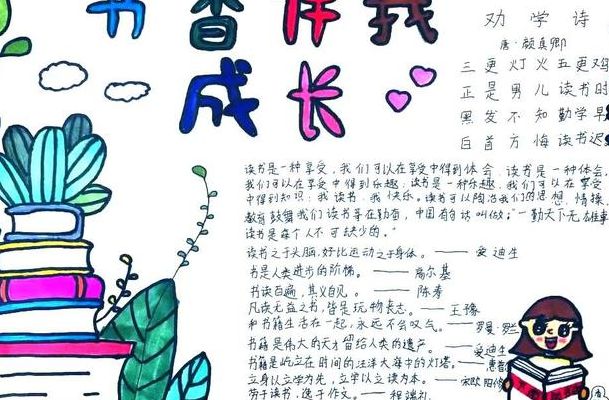 书香伴我
成长
劝学诗
唐·颜真卿
三更灯火五更鸡
正是男儿读书时
黑发不知勤学早
白首方悔读书迟
读书是一种享受，我们可以在享受中得到体会，读书是一种体会，
我们可以在享受中得到乐趣，读书是一种乐趣，我们可以在享受
中得到知识；我读书，我快乐。读书可以陶冶我们的思想、情操，
教育鼓舞我们读书等在勤奋，中国有句话叫做："一勤天下无难事
读书是每个人不可缺少的。"
读书之于头脑，好比运动之于身体。——爱迪生
书是人类进步的阶梯。——高尔基
书读百遍，其义自见。——陈寿
凡读无益之书，皆是玩物丧志。——王豫
和书籍生活在一起，永远不会叹气。——罗曼·罗兰
书籍是伟大的天才留给人类的遗产。——爱迪生
书籍是屹立在时间的汪洋大海中的灯塔。——惠普
立身以立学为先，立学以读书为本。——宋欧阳修
劳于读书，逸于作文。——程端礼